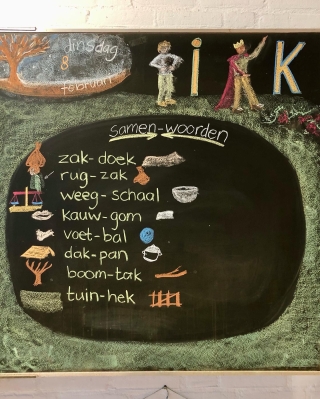 dinsdag
8
februari
i K
samen-woorden
zak-doek
rug-zak
weeg-schaal
kauw-gom
voet-bal
dak-pan
boom-tak
tuin-hek